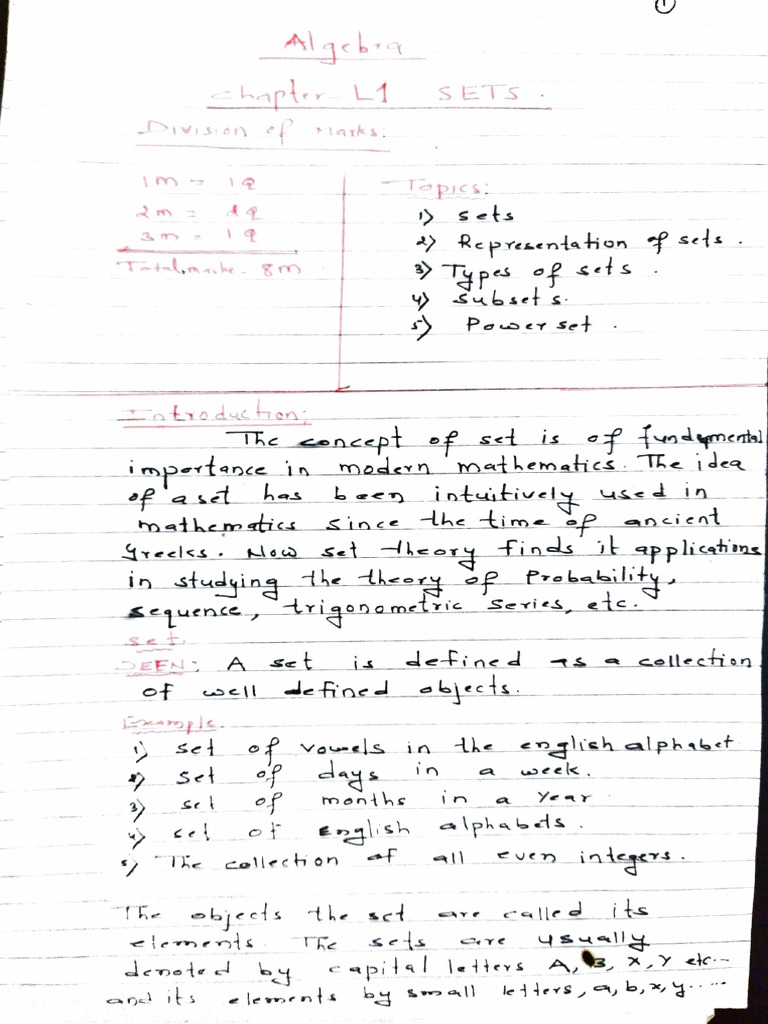 1
Algebra
Chapter - L1 SETS.
Division of Marks:
1m = 1Q
2m = 2Q
3m = 1Q
Total marks - 8m
Topics:
1) Sets
2) Representation of sets.
3) Types of sets.
4) Subsets.
5) Power set.
Introduction:
The concept of set is of fundamental
importance in modern mathematics. The idea
of a set has been intuitively used in
mathematics since the time of ancient
Greeks. Now set theory finds it applications
in studying the theory of Probability,
sequence, trigonometric series, etc.
Set
DEFN: A set is defined as a collection
of well defined objects.
Example.
1) set of vowels in the english alphabet
2) set of days in a week.
3) set of months in a Year
4) set of English alphabets.
5) The collection of all even integers.
The objects the set are called its
elements. The sets are usually
denoted by capital letters A, B, X, Y etc...
and its elements by small letters, a, b, x, y.....